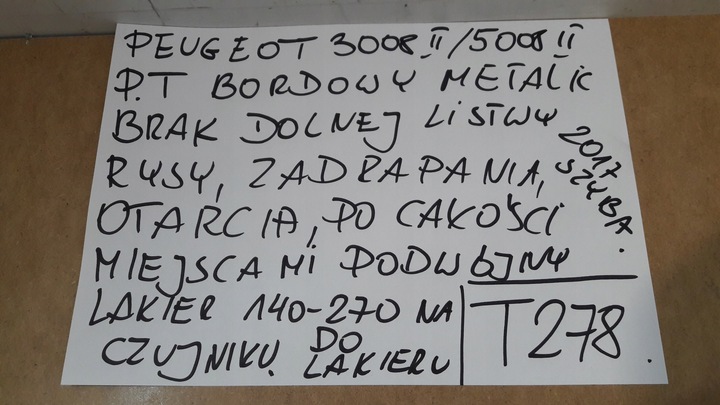 PEUGEOT 3008 II/5008 II
P.T BORDOWY METALIC
BRAK DOLNEJ LISTWY
RYSY, ZADRAPANIA,
OTARCIA, PO CAŁOŚCI
MIEJSCAMI PODWÓJNY
LAKIER 140-270 NA
CZUJNIKU DO LAKIERU
2017 SZYBA.
T278.